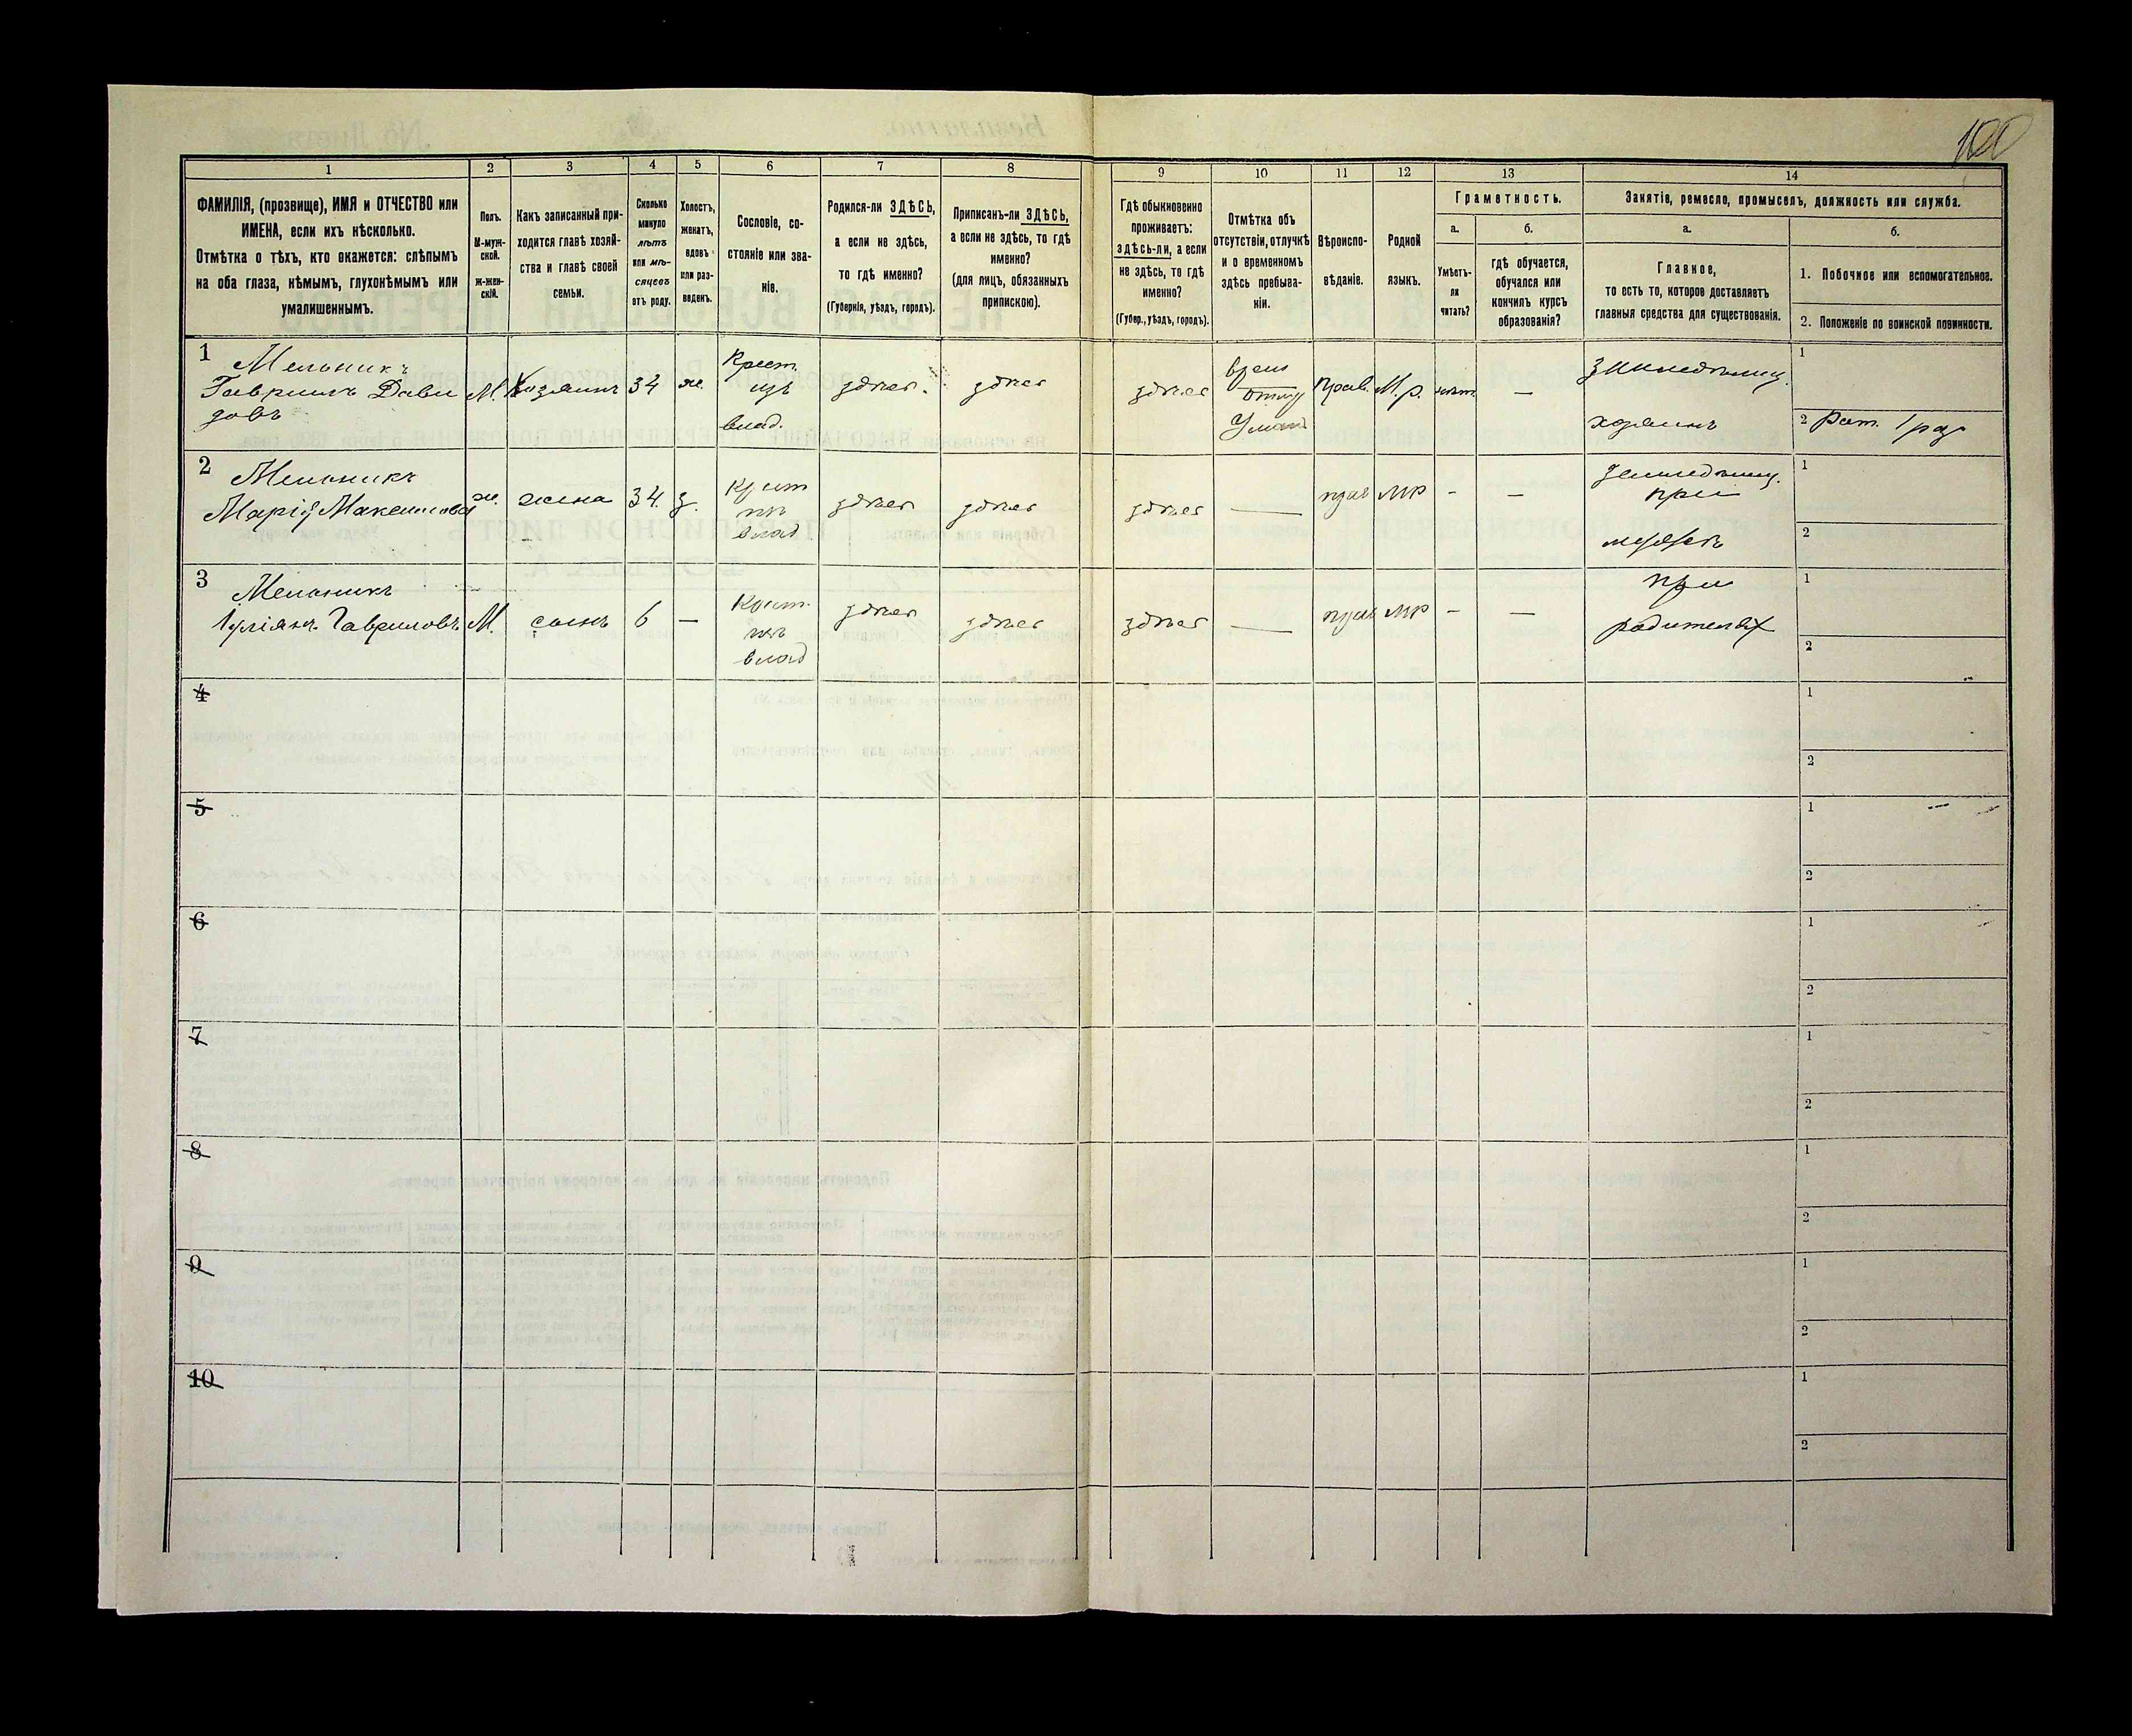 100
1
2
3
4
5
6
7
8
9
10
11
12
13
14
ФАМИЛІЯ, (прозвище), ИМЯ и ОТЧЕСТВО или
ИМЕНА, если ихъ нѣсколько.
Отмѣтка о тѣхъ, кто окажется: слѣпымъ
на оба глаза, нѣмымъ, глухонѣмымъ или
умалишеннымъ.
Полъ.
М-муж-
ской.
ж-жен-
скій.
Какъ записанный при-
ходится главѣ хозяй-
ства и главѣ своей
семьи.
Сколько
минуло
лѣтъ
или мѣ-
сяцевъ
отъ роду.
Холостъ,
женатъ,
вдовъ
или раз-
веденъ.
Сословіе, со-
стояніе или зва-
ніе.
Родился-ли ЗДѢСЬ,
а если не здѣсь,
то гдѣ именно?
(Губернія, уѣздъ, городъ).
Приписанъ-ли ЗДѢСЬ,
а если не здѣсь, то гдѣ
именно?
(для лицъ, обязанныхъ
припискою).
Гдѣ обыкновенно
проживаетъ:
здѣсь-ли, а если
не здѣсь, то гдѣ
именно?
(Губер., уѣздъ, городъ).
Отмѣтка объ
отсутствіи, отлучкѣ
и о временномъ
здѣсь пребыва-
ніи.
Вѣроиспо-
вѣданіе.
Родной
языкъ.
Грамотность.
а.
Умѣетъ-
ли
читать?
б.
гдѣ обучается,
обучался или
кончилъ курсъ
образованія?
Занятіе, ремесло, промыселъ, должность или служба.
а.
Главное,
то есть то, которое доставляетъ
главныя средства для существованія.
б.
1. Побочное или вспомогательное.
2. Положеніе по воинской повинности.
1
Мельникъ
Гаврилъ Дави
довъ
М.
Хозяинъ
34
ж.
Крест.
изъ
влад.
здѣсь
здѣсь
здѣсь
врем
отлуч
Умань
прав.
М. р.
нѣт
—
Земледѣлец.
хозяинъ
1
2 Рат. 1 раз
2
Мельникъ
Марія Максимова
ж.
жена
34
з.
Крест
изъ
влад
здѣсь
здѣсь
здѣсь
—
прав
мр
-
—
земледѣлец.
при
мужѣ
1
2
3
Мельникъ
Іуліянъ Гавриловъ
М.
сынъ
6
—
Крест.
изъ
влад
здѣсь
здѣсь
здѣсь
—
прав
мр
-
—
при
родителях
1
2
4
1
2
5
1
2
6
1
2
7
1
2
8
1
2
9
1
2
10
1
2